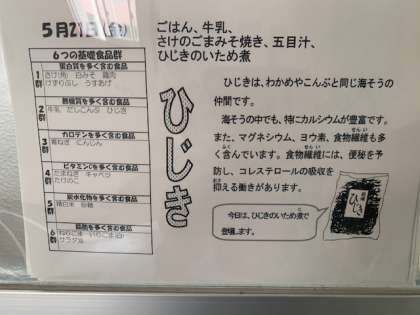 5月21日(
ごはん、牛乳、
さけのごまみそ焼き、五目汁、
ひじきのいため煮
6つの基礎食品群
蛋白質を多く含む食品
1群
さけ(角) 白みそ 鶏肉
けずりぶし うすあげ
無機質を多く含む食品
2群
牛乳 だしこんぶ ひじき
カロテンを多く含む食品
3群
青ねぎ にんじん
ビタミンCを多く含む食品
4群
たまねぎ キャベツ
たけのこ
炭水化物を多く含む食品
5群
精白米 砂糖
脂肪を多く含む食品
6群
ねりごま いりごま(白)
サラダ油
ひじき
ひじきは、わかめやこんぶと同じ海そうの
仲間です。
海そうの中でも、特にカルシウムが豊富です。
また、マグネシウム、ヨウ素、食物繊維も多
く含んでいます。食物繊維には、便秘を予
防し、コレステロールの吸収を
抑える働きがあります。
今日は、ひじきのいため煮で
登場します。
ひじき